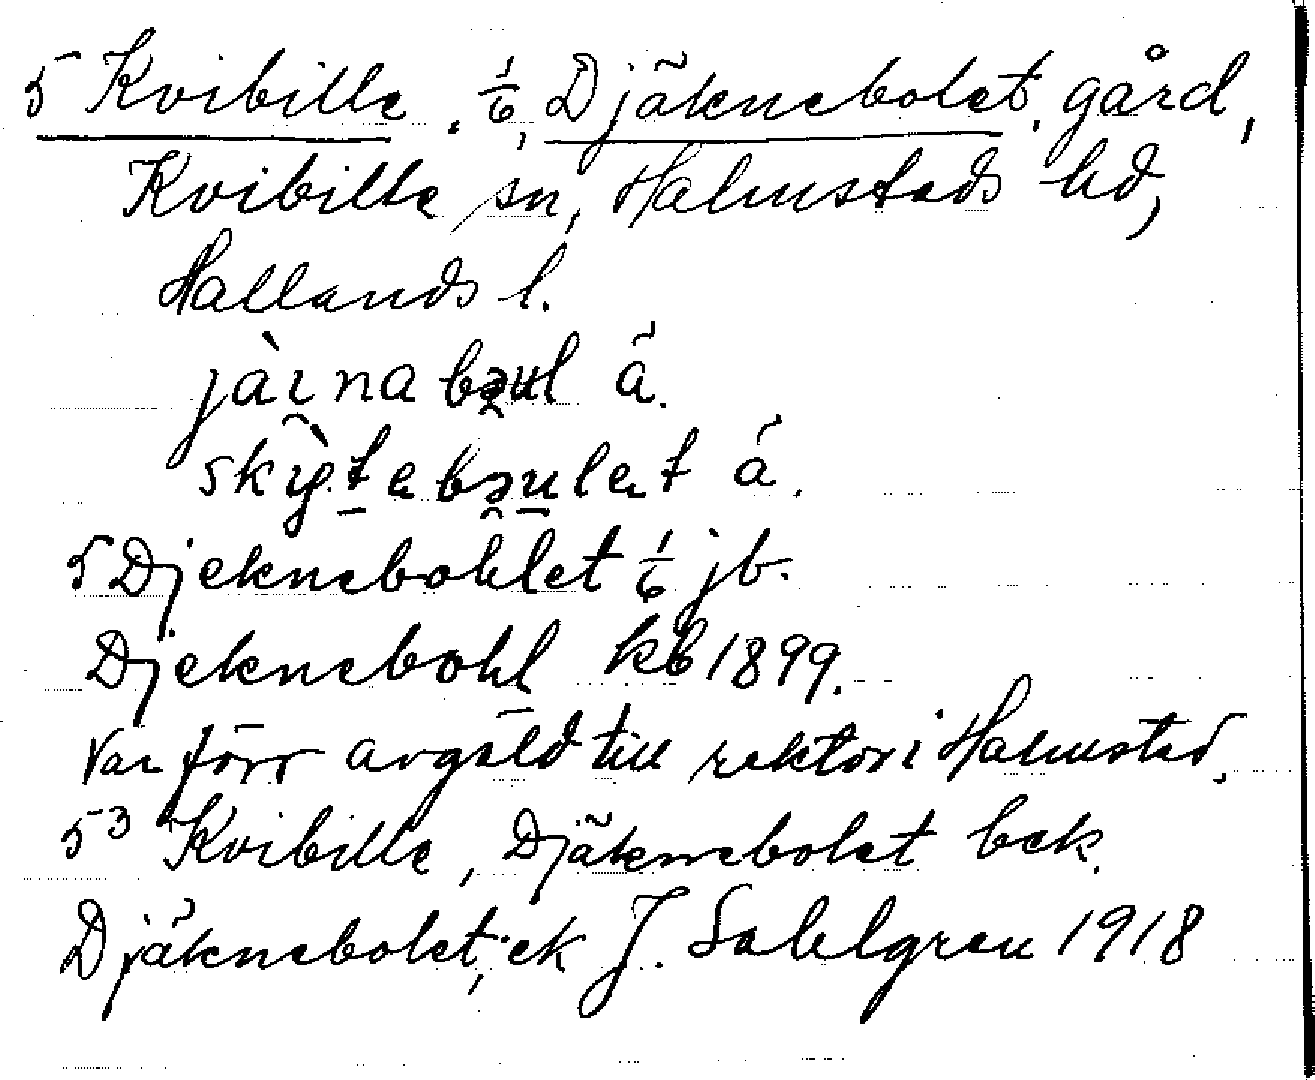 5 Kvibille. 1/6, Djäknebolet, gård,
Kvibille sn, Halmstads hd,
Hallands l.
jàɩna bəul á.
skỳtebəulet á.
5 Djeknebohlet 1/6 jb.
Djeknebohl kb 1899.
Var förr avgäld till rektor i Halmstad.
5³ Kvibille, Djäknebolet bek.
Djäknebolet; ek J. Sahlgren 1918